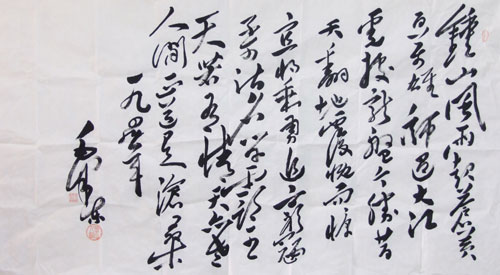 鍾山風雨起蒼黄
百万雄師过大江
虎踞龍盤今勝昔
天翻地覆慨而慷
宜將剩勇追窮寇
不可沽名学霸王
天若有情天亦老
人间正道是滄桑
一九四九年
毛泽东